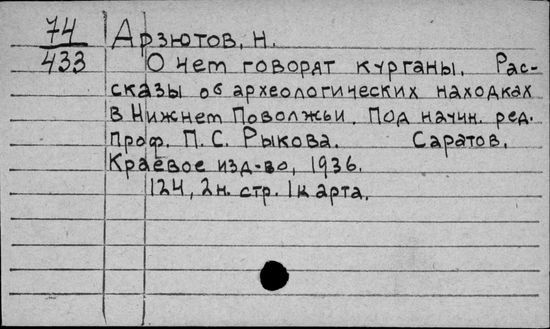 74
433
Арзютов, Н.
О чем говорят курганы. Рас-
сказы об археологических находках
в Нижнем Поволжьи. Под научн. ред.
проф. П. С. Рыкова. Саратов,
Краевое изд-во, 1936.
124, 2н. стр. 1 карта.